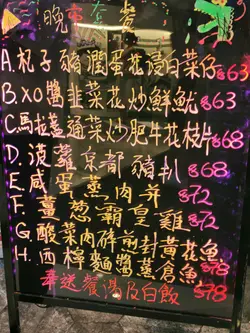 晚市套餐
A. 杞子豬潤蛋花浸白菜仔 $63
B. XO醬韮菜花炒鮮魷 $63
C. 馬拉盞通菜炒肥牛花枝片 $68
D. 菠蘿京都豬扒 $68
E. 咸蛋蒸肉并 $72
F. 薑葱霸皇雞 $72
G. 酸菜肉碎煎封黃花魚 $78
H. 西檸麵醬蒸倉魚 $78
奉送餐湯及白飯